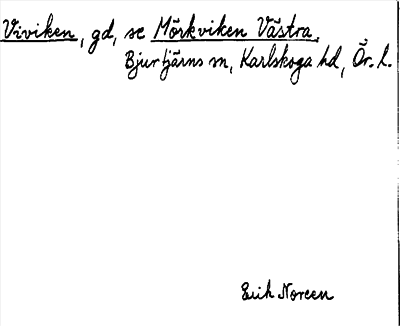 Viviken, gd, se Mörkviken Västra,
Bjurtjärns sn, Karlskoga hd, Ör. l.
Erik Noreen